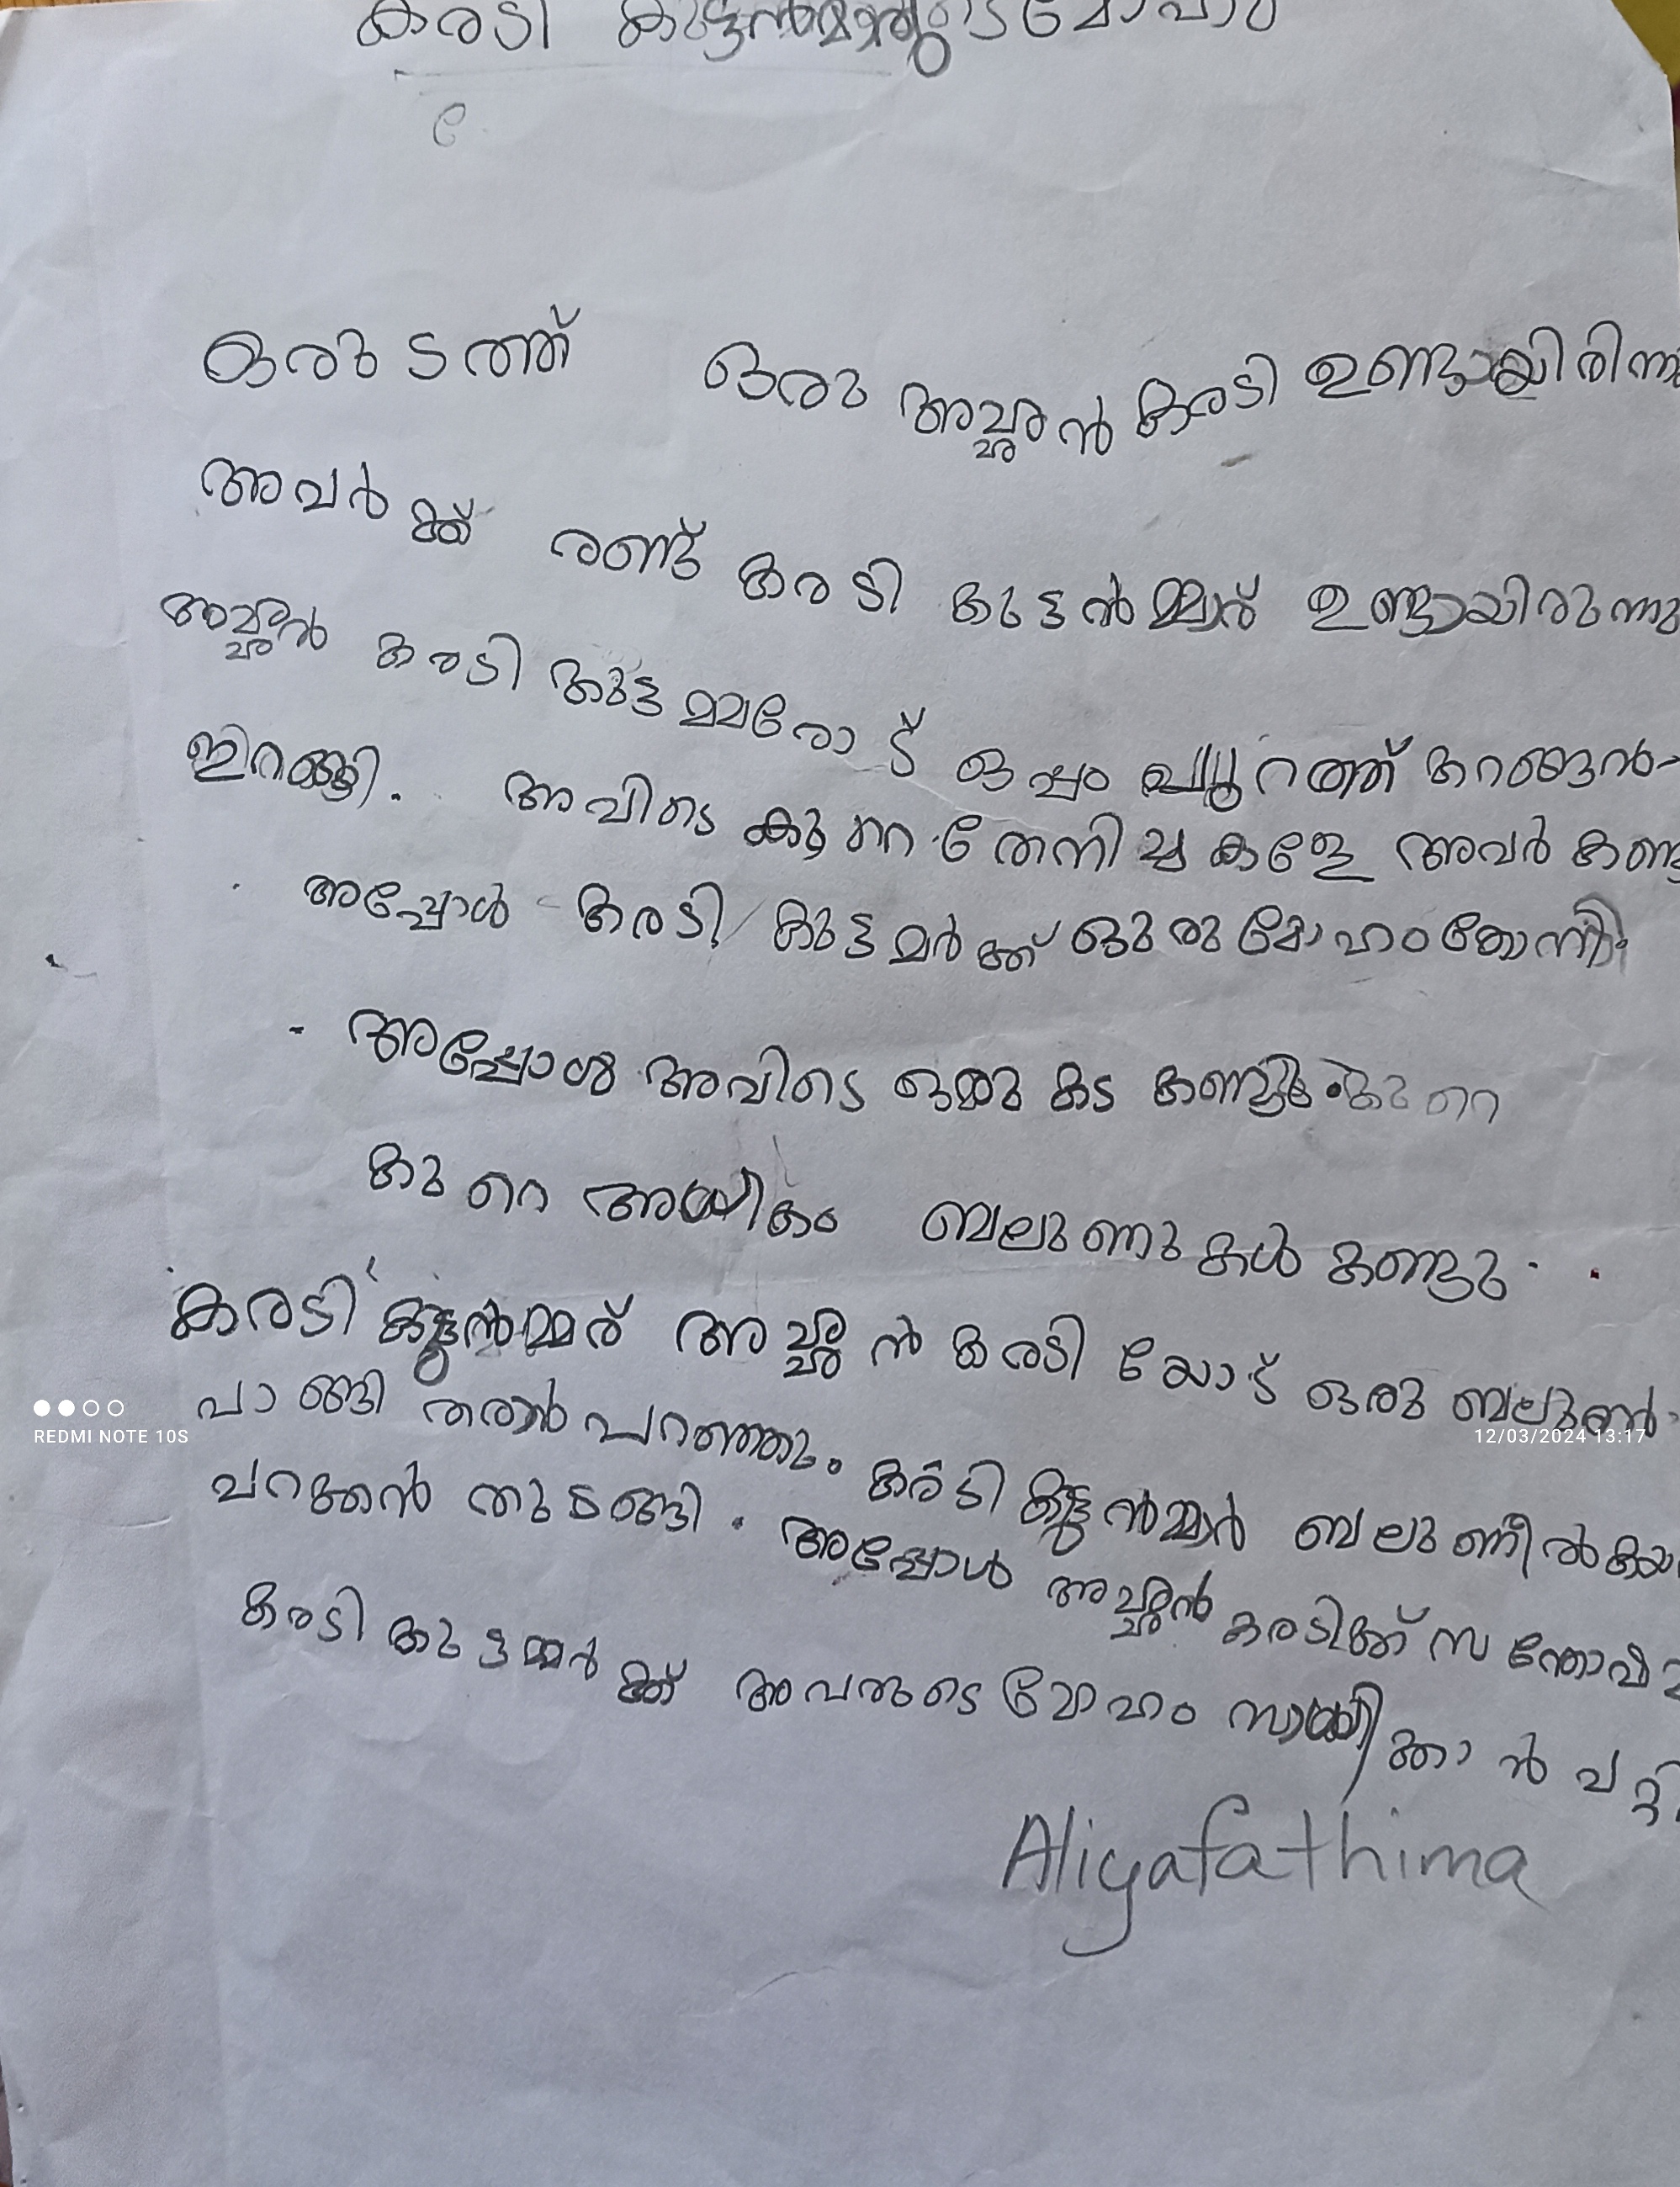 കരടി കുട്ടൻമാരുടെ മോഹം
ഒരുടത്ത് ഒരു അച്ഛൻ കരടി ഉണ്ടായിരിന്നു
അവർക്ക് രണ്ട് കരടി കുട്ടൻമ്മാര് ഉണ്ടായിരുന്നു
അച്ഛൻ കരടി കുട്ട മമരോട് ഒപ്പം പുറത്ത് കറങ്ങൻ
ഇറങ്ങി. അവിടെ കുറെ തേനിച്ചകളേ അവർ കണ്ടു
അപ്പോൾ കരടി കുട്ടമർക്ക് ഒരു മോഹം തോന്നി.
അപ്പോൾ അവിടെ ഒരു കട കണ്ടു. കുറെ
കുറെ അധികം ബലുണുകൾ കണ്ടു.
കരടി കുട്ടൻമ്മര് അച്ഛൻ കരടിയോട് ഒരു ബലുൺ
പാങ്ങി തരാൻ പറഞ്ഞു. കരടി കുട്ടൻമ്മാർ ബലുണീൽ
പറക്കൻ തുടങ്ങി. അപ്പോൾ അച്ഛൻ കരടിക്ക്
കരടി കുട്ടമ്മർക്ക് അവരുടെ മോഹം സാധിക്കാൻ
Aliyafathima
REDMI NOTE 10S
12/03/2024 13:17